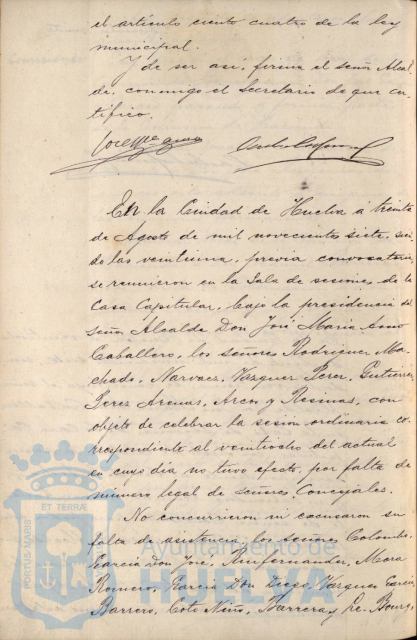 el artículo ciento cuatro de la ley
municipal.
Y de ser así, firma el señor Alcal-
de, conmigo el Secretario de que cer-
tifico.
En la Ciudad de Huelva á treinta
de Agosto de mil novecientos siete, sien-
do las veintiuna, previa convocatoria,
se reunieron en la Sala de sesiones de la
Casa Capitular, bajo la presidencia del
Señor Alcalde Don José María
Caballero, los señores Rodriguez Ma-
chado, Narvaez, Vazquez Perez, Gutierrez,
Perez Arenas, Arcos y Resinas, con
objeto de celebrar la sesion ordinaria co-
rrespondiente al veintiocho del actual
en cuyo dia no tuvo efecto, por falta de
número legal de señores Concejales.
No concurrieron ni excusaron su
falta de asistencia, los señores Colombo,
García Don José, Ruifernandez, Mora
Romero, García Don Diego, Vazquez García,
Barrero, Coto Niño, Barrera y
PORTUS MARIS
ET TERRÆ
Ayuntamiento de
HUELVA